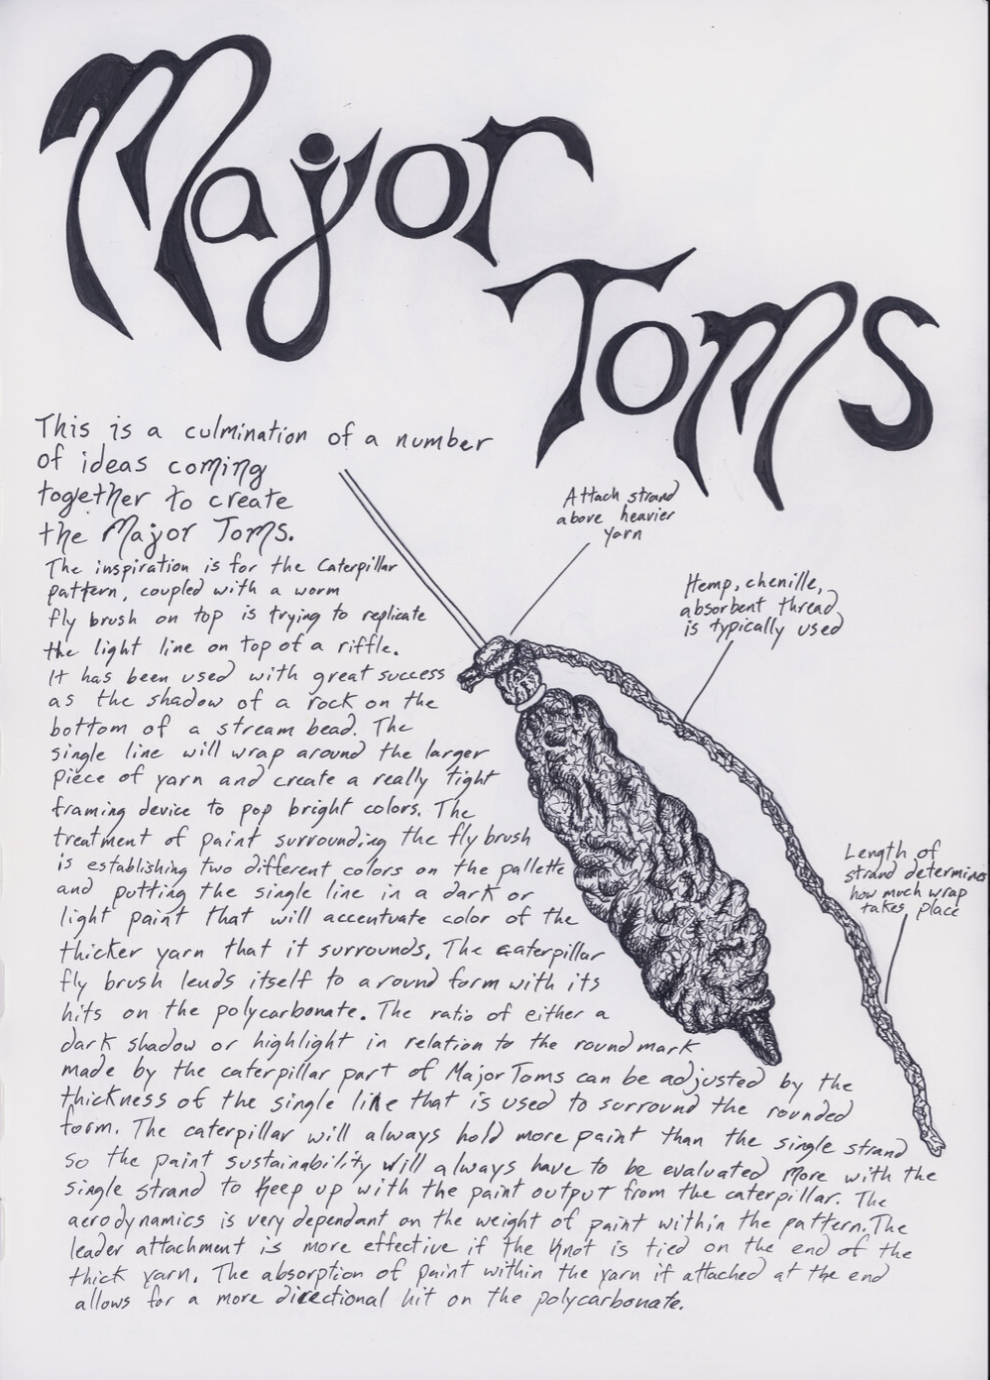 Major
Toms
This is a culmination of a number
of ideas coming
together to create
the Major Toms.
The inspiration is for the Caterpillar
pattern, coupled with a worm
fly brush on top is trying to replicate
the light line on top of a riffle.
It has been used with great success
as the shadow of a rock on the
bottom of a stream bead. The
single line will wrap around the larger
piece of yarn and create a really tight
framing device to pop bright colors. The
treatment of paint surrounding the fly brush
is establishing two different colors on the pallette
and putting the single line in a dark or
light paint that will accentuate color of the
thicker yarn that it surrounds. The caterpillar
fly brush lends itself to a round form with its
hits on the polycarbonate. The ratio of either a
dark shadow or highlight in relation to the round mark
made by the caterpillar part of Major Toms can be adjusted by the
thickness of the single line that is used to surround the rounded
form. The caterpillar will always hold more paint than the single strand
so the paint sustainability will always have to be evaluated more with the
single strand to keep up with the paint output from the caterpillar. The
aerodynamics is very dependant on the weight of paint within the pattern. The
leader attachment is more effective if the knot is tied on the end of the
thick yarn. The absorption of paint within the yarn if attached at the end
allows for a more directional hit on the polycarbonate.
Attach strand
above heavier
yarn
Hemp, chenille,
absorbent thread
is typically used
Length of
strand determines
how much wrap
takes place